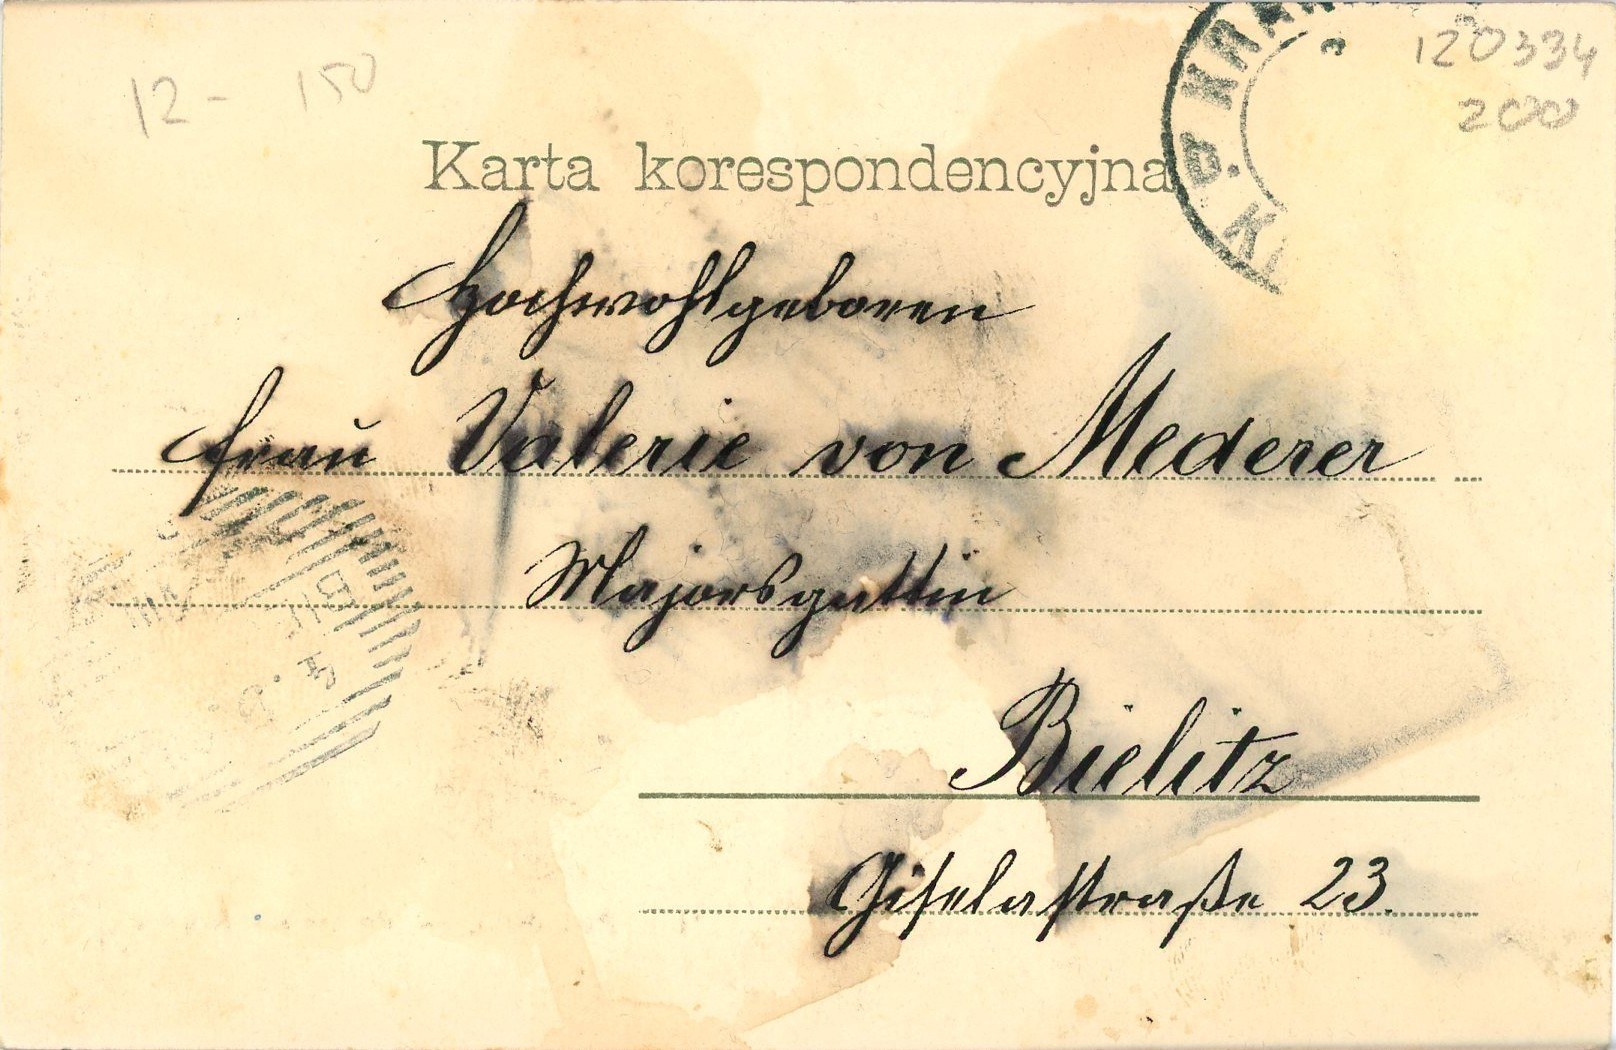 12 - 150
120334
200
Karta korespondencyjna
Hochwohlgeboren
Frau Valerie von Mederer
Majorsgattin
Bielitz
Giselastraße 23.